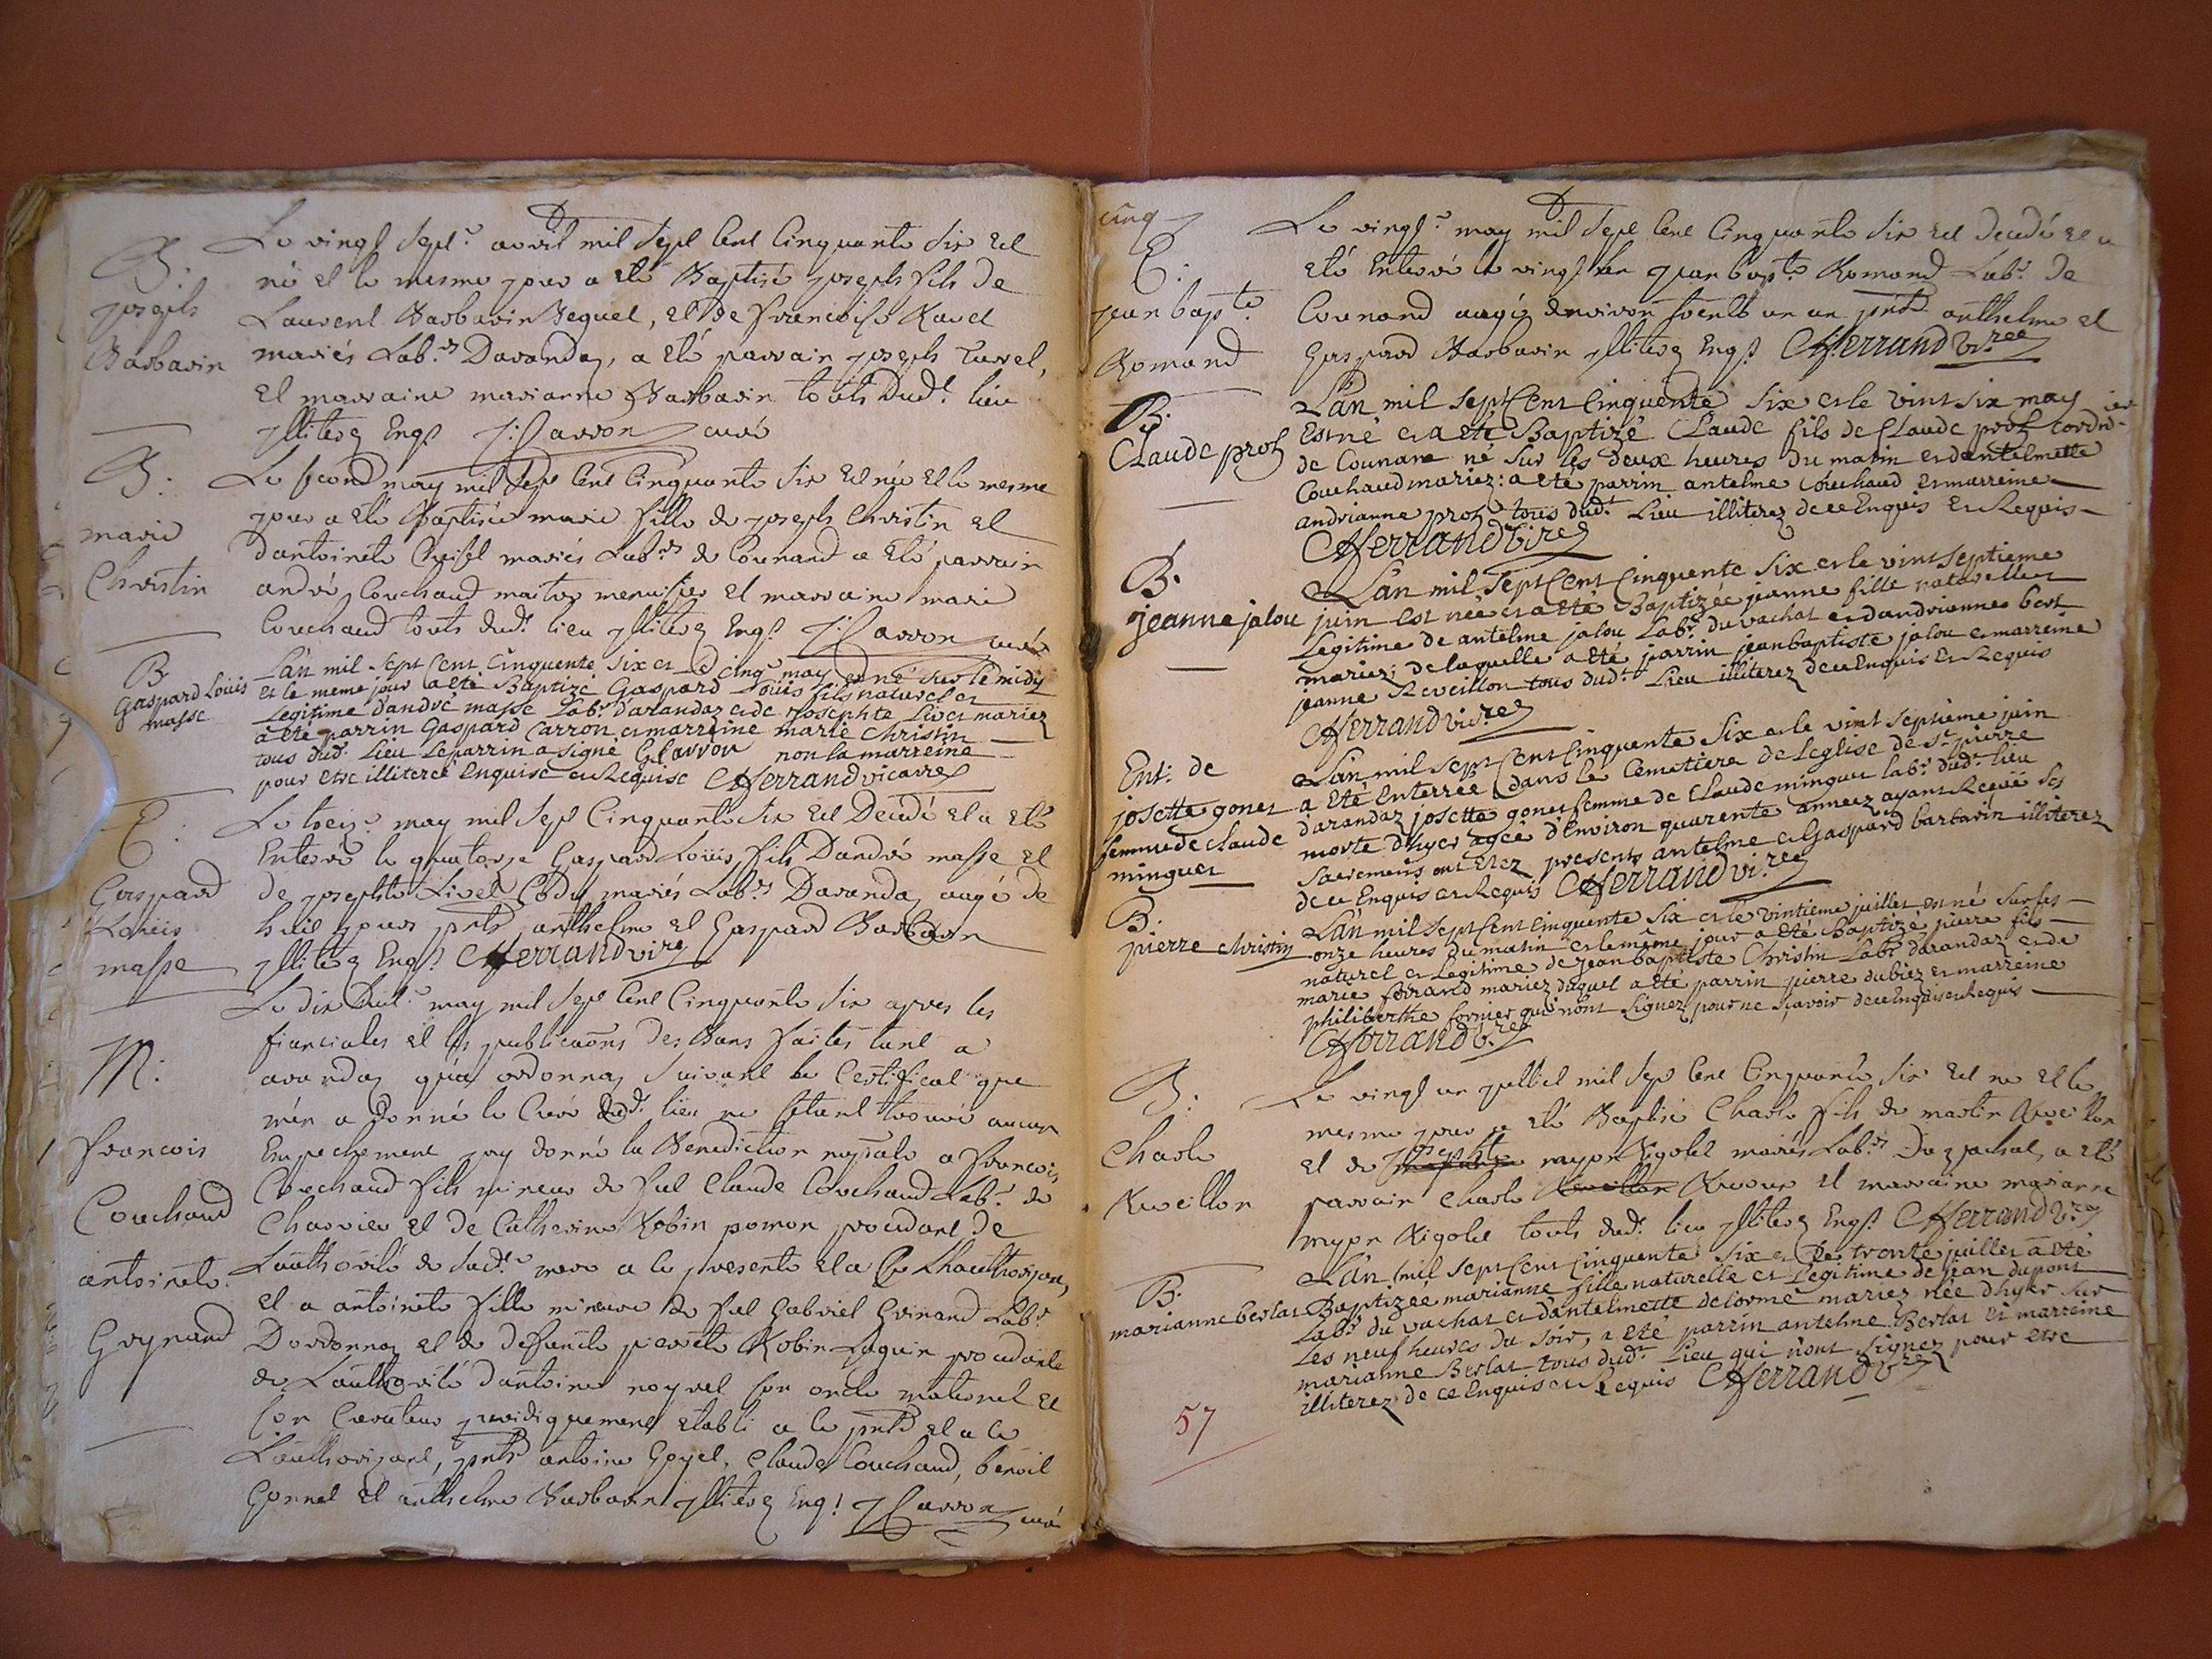 B.
joseph
Barbarin
Le vingt sept.e avril mil sept cent cinquante six est
né et le mesme jour a eté Baptisé joseph fils de
Laurent Barbarin Jequet, et de francoise Ravet
mariés Lab.rs Darandaz, a eté parrain joseph
et marraine marianne Barbarin touts dud.t lieu
jlliterez Enq.s J: Carron curé
B.
marie
Christin
Le second may mil sept cent cinquante six est née et le mesme
jour a eté Baptisée marie fille de joseph Christin et
dantoinete mariés Lab.rs de Counand a eté parrain
andré Couchaud maitre menusier et marraine marie
Couchaud touts dud.t lieu jlliterez Enq.s J: Carron curé
B
Gaspard Loüis
masse
Lan mil sept cent cinquente six et le cinq.e may est né sur le midy
et le meme jour a eté Baptizé Gaspard Loüis fils naturel et
Legitime d'andré masse Lab.r d'arandaz et de josephte Livet mariez
a eté parrin Gaspard Carron et marreine marie christin
tous dud.t Lieu Le parrin a signé G Carron non la marreine
pour etre illiterée Enquise et Requise CHerrand vicaire
E.
Gaspard
Loüis
masse
Le treiz.e may mil sept Cinquante six est Decedé et a eté
Enterré le quatorze Gaspard Loüis fils Dandré masse et
de josephte Livet mariés Lab.rs Darandaz aagé de
huit jours pnts anthelme et Gaspard Barbarin
jlliterez Enq.s CHerrand vire
M.
francois
Couchaud
antoinete
Grynand
Le dix huit.e may mil sept cent cinquante six apres les
fianciales et les publications des Bans faites tant a
arandaz qu'a ordonnaz suivant le Certificat que
m'en a donné le Curé dud.t lieu ne setant trouvé aucun
Empechement jay donné la Benediction nuptiale a francois
Couchaud fils mineur de fut Claude Couchaud Lab.r de
Charvieu et de Catherine Robin pomon procedant de
Lauthorité de sad.te mere a ce presente et a ce Lhauthorizant,
et a antoinete fille mineure de fut Gabriel Grinand Lab.r
Dordonnaz et de defuncte pierrete Robin procedante
de Lauthorité dantoine noyret son oncle maternel et
son Curateur juridiquement etabli a ce pnts et a ce
Lauthorizant, pnts antoine Goyet, Claude Couchaud, benoit
Gonnet et anthelme Barbarin jlliterez Enq.s J: Carron curé
cinq
E.
jean bap.te
Romand
Le vingt.e may mil sept cent cinquante six est decedé et a
eté Enterré le vingt un jean bap.te Romand Lab.r de
Counand aagé denviron soixte un an pnts anthelme et
Gaspard Barbarin jlliterez Enq.s CHerrand vi.ree
B.
Claude proz
Lan mil sept cent cinquente six et le vint six may
est né et a eté Baptizé Claude fils de Claude proz cordn.ier
de Counane né sur les deux heures du matin et dantelmette
Couchaud mariez: a eté parrin antelme couchaud et marreine
andrianne proz tous dud.t Lieu illiterez de ce Enquis et Requis
CHerrand vire
B.
jeanne jalou
Lan mil sept cent cinquente six et le vint septieme
juin est née et a eté Baptizée jeanne fille naturelle et
Legitime de antelme jalou Lab.r du vachat et dandrianne bert
mariez; de laquelle a eté parrin jean baptiste jalou et marreine
jeanne Reveillon tous dud.t Lieu illiterez de ce Enquis et Requis
CHerrand vi:re
Ent: de
josette gonet
femme de claude
minguet
Lan mil sept cent cinquente six et le vint septieme juin
a eté Enterrée dans le Cemetiere de Leglise de s.t pierre
d'arandaz josette gonet femme de Claude minguet lab.r dud.t lieu
morte d'hyer agée d'Environ quarente annéez ayant Reçüe ses
sacremens ont etez presents antelme et Gaspard barbarin illiterez
de ce Enquis et Requis CHerrand vi.re
B.
pierre christin
Lan mil sept cent cinquente six et le vintieme juillet est né sur les
onze heures du matin et le même jour a eté Baptizé pierre fils
naturel et Legitime de jean baptiste Christin Lab.r darandaz et de
marie ferrand mariez duquel a eté parrin pierre dubiez et marreine
philiberthe fornier qui n'ont signez pour ne sçavoir de ce Enquis et Requis
CHerrand v.re
B.
Charle
Reveillon
Le vingt un julliet mil sept cent cinquante six est né et le
mesme jour a eté Baptisé Charle fils de martin Reveillon
et de josephte mypon Rigolet mariés Lab.rs Du vachat, a eté
parrain Charle Reveillon et marraine marianne
mypon Rigolet touts dud.t lieu jlliterez Enq.s CHerrand v.re
B.
marianne berlat
Lan mil sept cent cinquente six et le trente juillet a eté
Baptizée marianne fille naturelle et Legitime de jean dupont
Lab.r du vachat et d'antelmette delorme mariez née d'hyer sur
Les neuf heures du soir, a eté parrin antelme Berlat et marreine
marianne Berlat tous dud.t Lieu qui n'ont signez pour etre
illiterez de ce Enquis et Requis CHerrand v.re
57